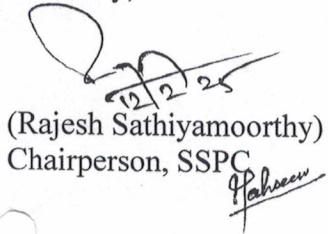 12/2/25
(Rajesh Sathiyamoorthy)
Chairperson, SSPC